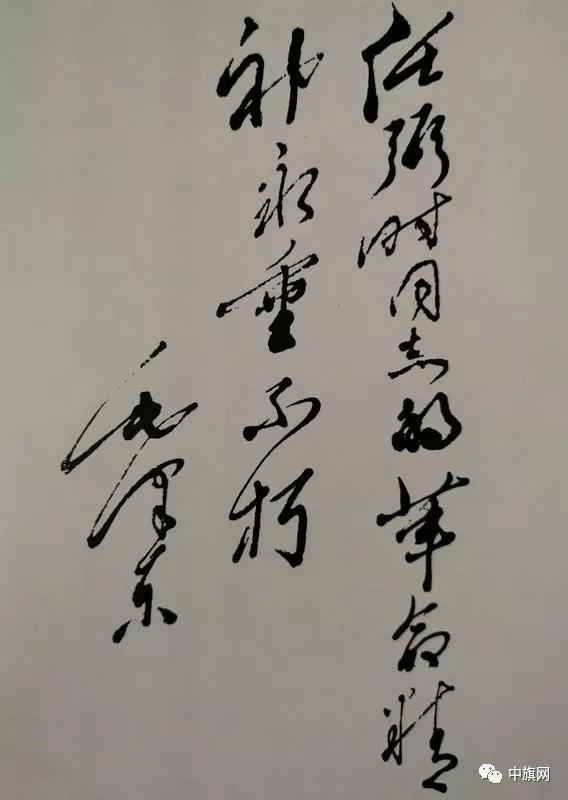 任弼时同志的革命精
神永垂不朽
毛泽东
中旗网